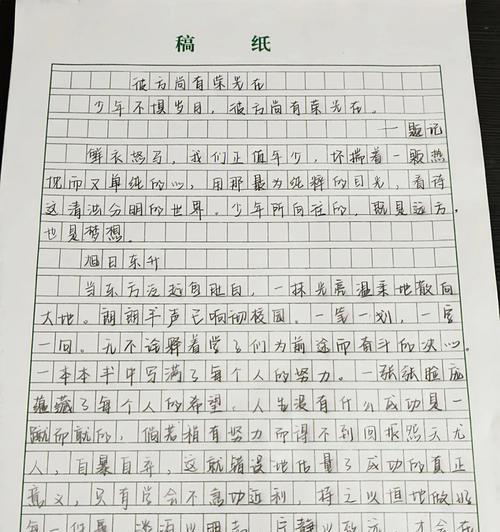 稿 纸
彼方尚有荣光在
少年不惧岁月，彼方尚有荣光在。
——题记
鲜衣怒马，我们正值年少，怀揣着一颗热
忱而又单纯的心，用那最为纯粹的目光，看待
这清浊分明的世界。少年所向往的，既是远方，
也是梦想。
旭日东升
当东方泛起鱼肚白，一抹光亮温柔地散向
大地。朗朗书声已响彻校园。一笔一划，一言
一问。无不诠释着学子们为前途而奋斗的决心。
一本本书中写满了每个人的努力。一张张脸庞
蕴藏了每个人的希望。人生没有什么成功是一
蹴而就的，倘若稍有努力而得不到回报怨天尤
人，自暴自弃，这就错误地估量了成功的真正
意义，只有学会不急功近利，持之以恒地做好
每一件事